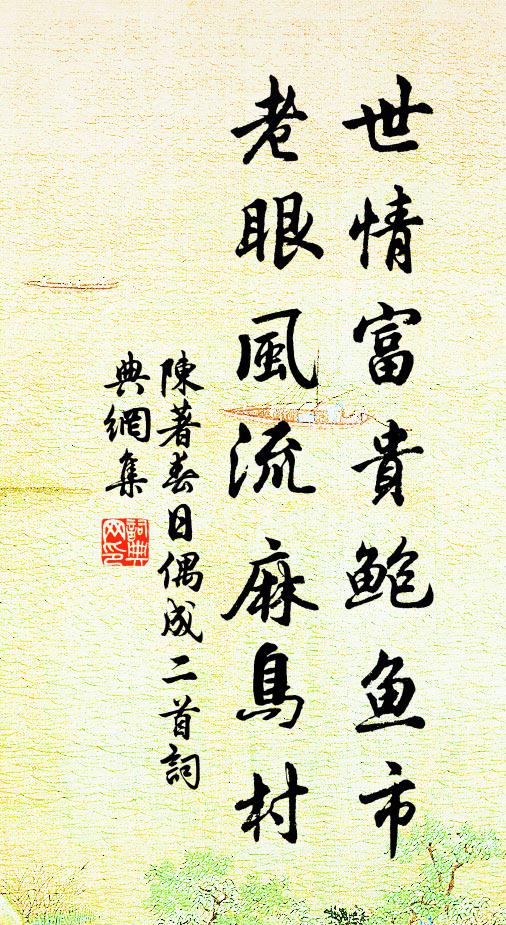 世情富貴鮑魚市
老眼風流麻鳥村
陳著春日偶成二首詞
典網集
詞典網印